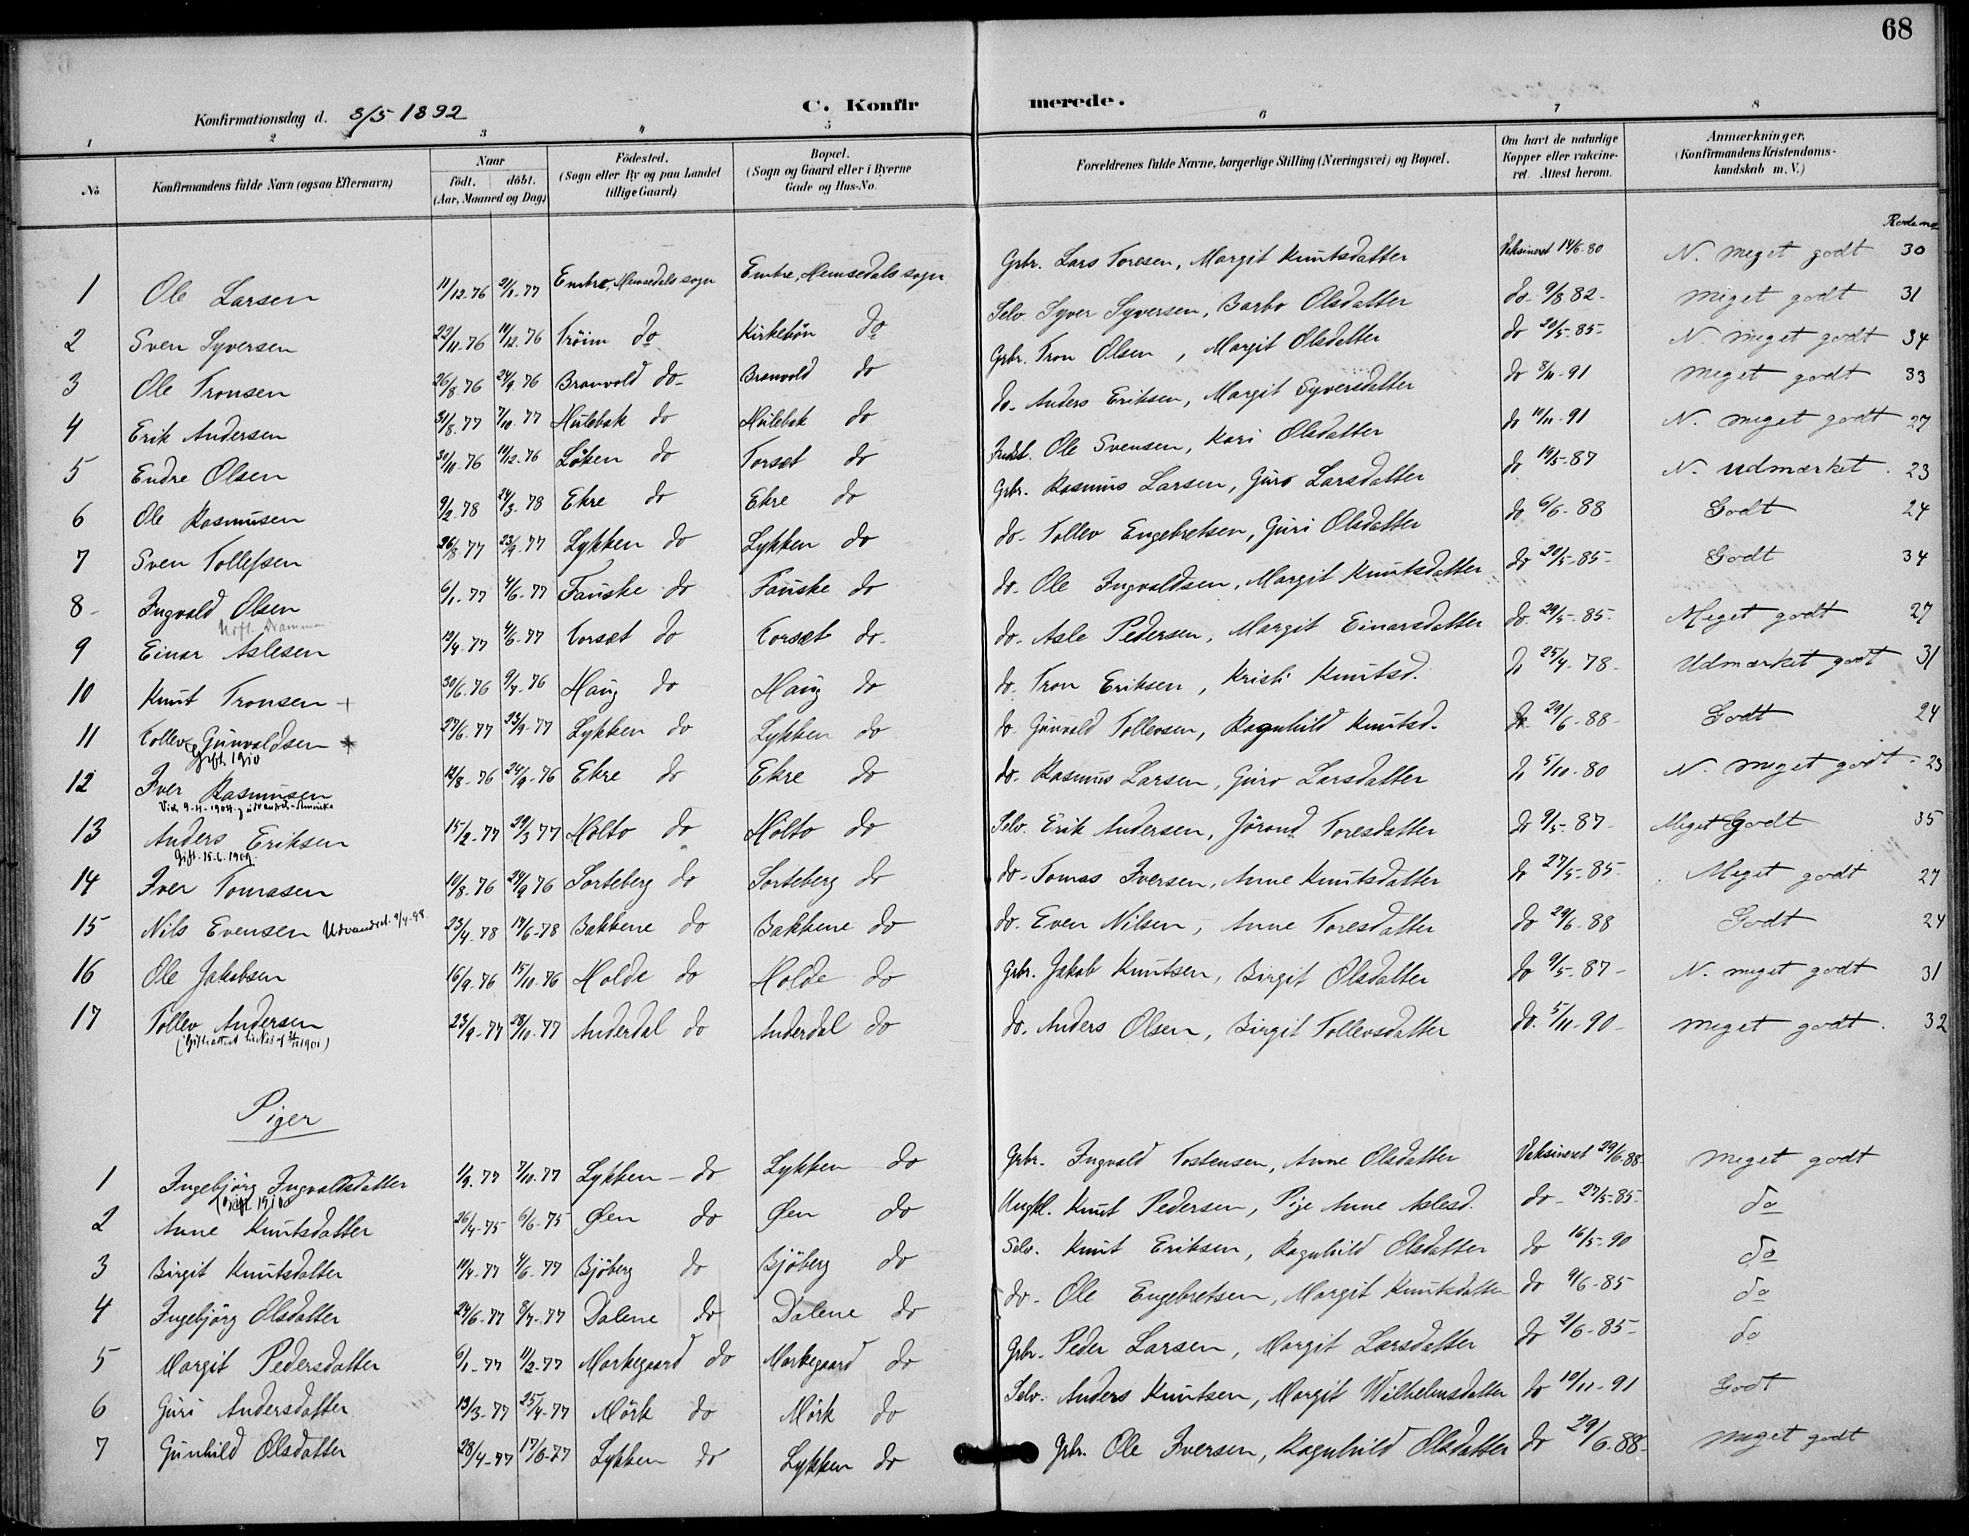 68
Konfirmationsdag d. 8/5 1892
C. Konfirmerede.
1 2 3 4 5 6 7 8
No.
Konfirmandens fulde Navn (ogsaa Efternavn)
Naar
födt. döbt.
(Aar, Maaned og Dag)
Födested.
(Sogn eller By og paa Landet
tillige Gaard)
Bopæl.
(Sogn og Gaard eller i Byerne
Gade og Hus-No.
Forældrenes fulde Navne, borgerlige Stilling (Næringsvei) og Bopæl.
Om havt de naturlige
Kopper eller vakcine-
ret. Attest herom.
Anmærkninger.
(Konfirmandens Kristendoms-
kundskab m. V.)
1 Ole Larsen 11/12-76 21/1-77 Embre, Hemsedals sogn Embre, Hemsedals sogn Gbr. Lars Toresen, Margit Knutsdatter Vaksineret 14/6-80 N. meget godt 30
2 Sven Syversen 22/11-76 19/12-76 Tröim do Kirkebön do Selv. Syver Syversen, Barbo Olsdatter do 9/8 82- meget godt 31
3 Ole Tronsen 26/8-76 24/9-76 Branvold do- Branvold do Gbr. Tron Olsen, Margit Olsdatter do 20/5-85- N. meget godt 34
4 Erik Andersen 31/8-77 7/10-77 Hulebak do Hulebak do do- Anders Eriksen, Margit Syversdatter do 8/11-91 Meget godt 33
5 Endre Olsen 30/10-76 11/12-76 Löken do Torset do Ole Svensen, Kari Olsdatter do 11/11-91 N. meget godt 27
6 Ole Rasmusen 9/2-78 24/3-78 Ekre do Ekre do Gbr. Rasmus Larsen, Guro Larsdatter do 19/5-87 N. udmærket 23
7 Sven Tollefsen 26/8-77 23/9-77 Lykken do Lykken do do- Tollev Engebretsen, Guri Olsdatter do 6/6-88 Godt 24
8- Ingvald Olsen 6/1-77 4/6-77 Fauske do Fauske do do- Ole Ingvaldsen, Margit Knutsdatter do 20/5-85- Godt 34
9 Einar Aslesen 19/4-77 4/6-77 Torset do Torset do- do- Asle Pedersen, Margit Einarsdatter do 29/5-85- Meget godt 27
10 Knut Tronsen + 30/6-76 9/7-76 Haug do Haug do do- Tron Eriksen, Kristi Knutsd. do 25/4-78- Udmærket godt 31
11 Tollev Gunvaldsen 27/6-77 23/9-77 Lykken do Lykken do do Gunvald Tollevsen, Ragnhild Knutsd. do 29/6-88- Godt 24
Gift 1910
12 Iver Rasmusen 12/8-76 24/9-76 Ekre do Ekre do do- Rasmus Larsen, Guro Larsdatter do 5/10-80 N. meget godt- 23
13 Anders Eriksen 15/2-77 29/3 77 Holto do Holto do Selv. Erik Andersen, Jörand Toresdatter do 9/5-87- Meget Godt 35
Gift 15.6.1909.
14 Iver Tomasen 19/8-76 24/9 76 Sorteberg do Sorteberg do do- Tomas Iversen, Anne Knutsdatter do 27/5-85- Meget godt 27
15 Nils Evensen Udvandret 9/4-98 23/4-78 17/6-78 Bakkene do Bakkene do do- Even Nilsen, Anne Toresdatter do 29/6-88 Godt 24
16 Ole Jakobsen 16/9-76 15/10-76 Holde do Holde do Gbr. Jakob Knutsen, Birgit Olsdatter do 9/5-87- N. meget godt 31
17 Tollev Andersen 23/9-77 28/10-77 Anderdal do Anderdal do do. Anders Olsen, Birgit Tollevsdatter do. 5/11-90- meget godt. 32
Piger
1 Ingebjörg Ingvaldsdatter 1/9-77 7/10-77 Lykken- do Lykken do Gbr. Ingvald Tostensen, Anne Olsdatter Vaksineret 29/6-88- meget godt
2 Anne Knutsdatter 26/4-75 6/6-75 Øen do Øen do Ungkl. Knut Pedersen, Pige Anne Aslesd. do- 27/5-85- do
3 Birgit Knutsdatter 19/4-77 4/6-77 Bjöberg do Bjöberg do Selv. Knut Eriksen, Ragnhild Olsdatter do 16/5-90 do
4 Ingebjörg Olsdatter 24/6-77 8/7-77 Dalene do Dalene do do- Ole Engebretsen, Margit Knutsdatter do 9/6-85 do
5 Margit Pedersdatter 6/1-77 11/2-77 Markegaard do Markegaard do Gbr. Peder Larsen, Margit Larsdatter do 2/6-85- do
6 Guri Andersdatter 13/3-77 25/4-77 Mörk do Mörk do Selv. Anders Knutsen, Margit Wilhelmsdatter do 10/11-91 Godt
7 Gunhild Olsdatter 28/4-77 17/6-77 Lykken do Lykken do Gbr. Ole Iversen, Ragnhild Olsdatter do 29/6-88- Meget godt